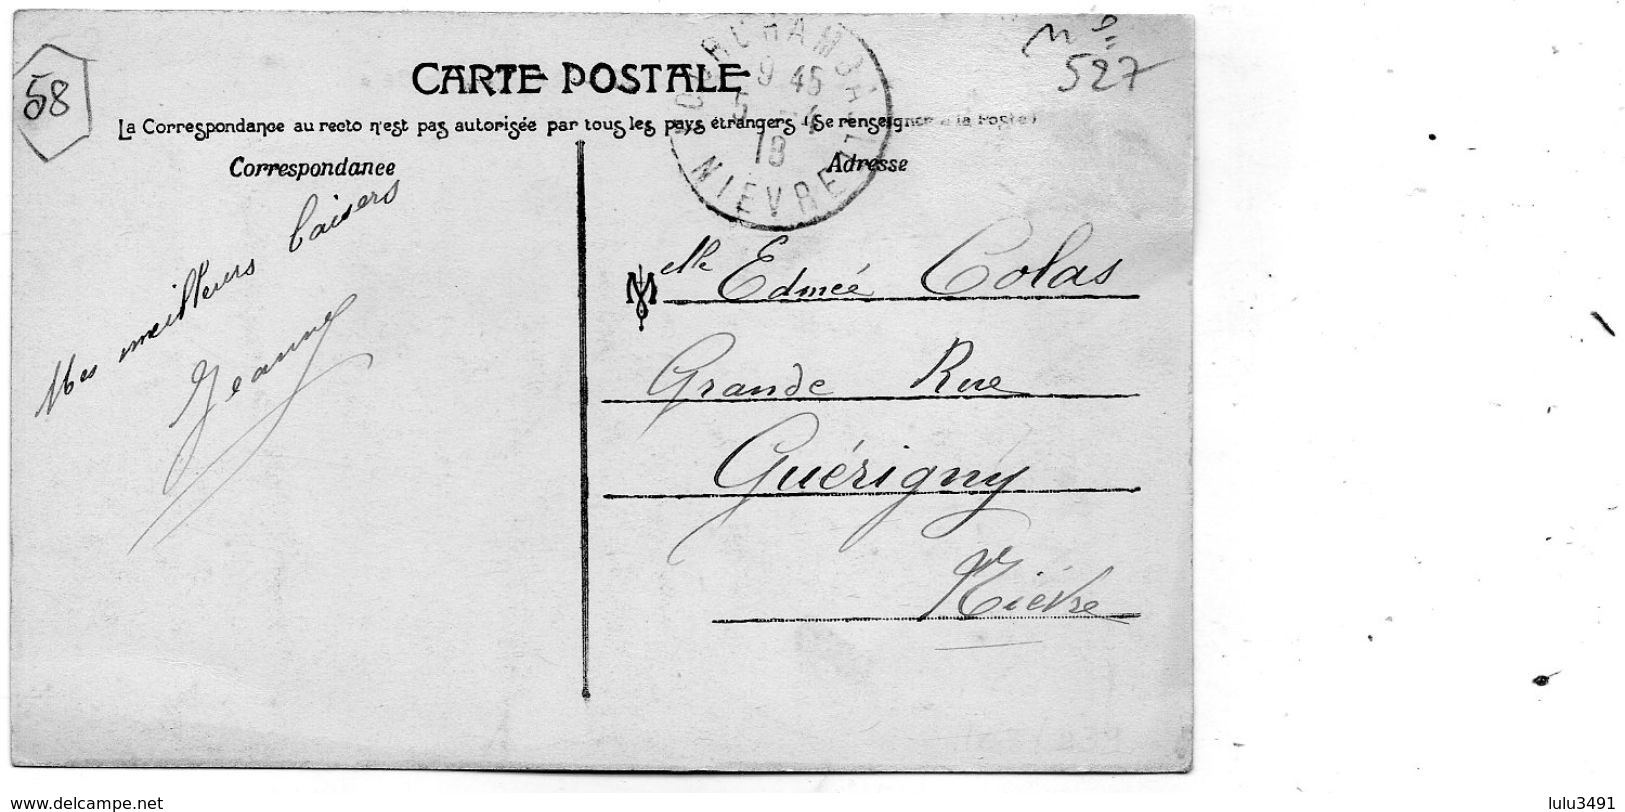 58
nº
527
CARTE POSTALE
La Correspondance au recto n'est pas autorisée par tous les pays étrangers (Se renseigner à la Poste)
Correspondance
Adresse
9 45
5 - 4
18
NIEVRE
Mes meilleurs baisers
Jeanne
Melle Edmée Colas
Grande Rue
Guérigny
Nièvre
www.delcampe.net
lulu3491